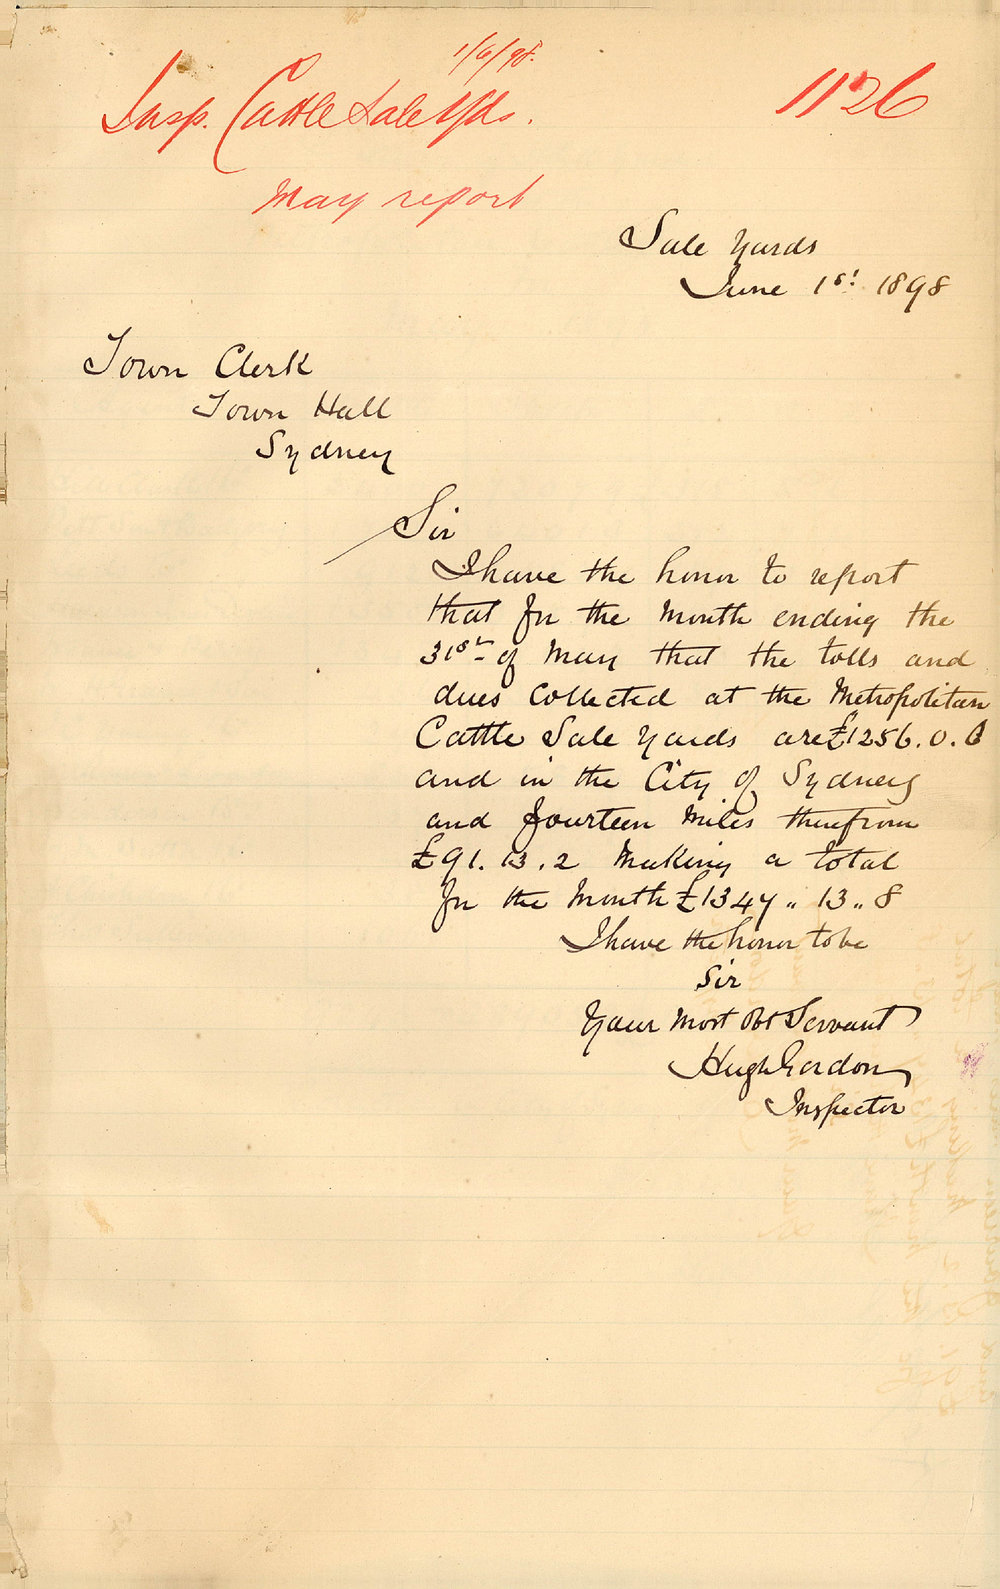 1/6/98.
Insp. Cattle Sale Yds.
1126
May report
Sale Yards
June 1st 1898
Town Clerk
Town Hall
Sydney
Sir
I have the honor to report
that for the Month ending the
31st of May that the tolls and
dues collected at the Metropolitan
Cattle Sale Yards are £1256.0.6
and in the City of Sydney
and fourteen Miles therefrom
£91.13.2 Making a total
for the Month £1347 " 13 " 8
I have the honor to be
Sir
Your Most Obt Servant
Hugh Gordon
Inspector